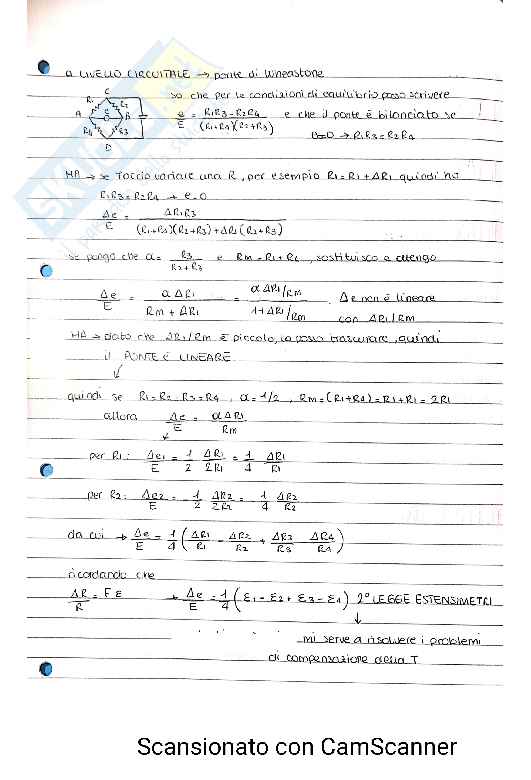 a LIVELLO CIRCUITALE → ponte di Wineastone
so che per le condizioni di equilibrio posso scrivere
C
R1 R2
A e B
R4 R3
D
e/E = R1R3 - R2R4 / (R1+R4)(R2+R3) e che il ponte è bilanciato se !
e=0 → R1R3 = R2R4
MA → se faccio variare una R, per esempio R1 = R1 + ΔR1 quindi ho
R1R3 = R2R4 → e=0
Δe/E = ΔR1R3 / (R1+R4)(R2+R3) + ΔR1(R2+R3)
se pongo che a = R3/R2+R3 e Rm = R1+R4, sostituisco e ottengo
Δe/E = a ΔR1 / Rm + ΔR1 = a ΔR1/Rm / 1+ΔR1/Rm . Δe non è lineare
con ΔR1/Rm
MA → dato che ΔR1/Rm è piccolo, lo posso trascurare, quindi
il PONTE È LINEARE
quindi se R1=R2=R3=R4, a = 1/2, Rm = (R1+R4) = R1+R1 = 2R1
allora Δe/E = a ΔR1 / Rm
per R1: Δe1/E = 1/2 ΔR1/2R1 = 1/4 ΔR1/R1
per R2: Δe2/E = -1/2 ΔR2/2R2 = -1/4 ΔR2/R2
da cui → Δe/E = 1/4 (ΔR1/R1 - ΔR2/R2 + ΔR3/R3 - ΔR4/R4)
ricordando che
ΔR/R = F ε → Δe/E = 1/4 (ε1 - ε2 + ε3 - ε4) 2° LEGGE ESTENSIMETRI
mi serve a risolvere i problemi
di compensazione della T
Scansionato con CamScanner